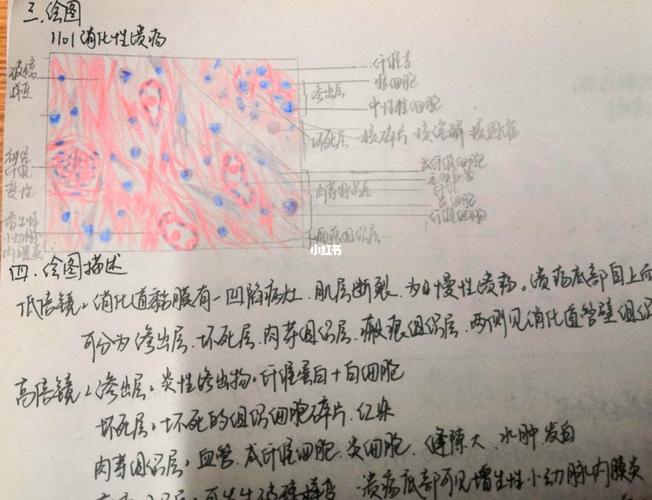 三.绘图
1101 消化性溃疡
玻璃
样变
纤维素
炎细胞
渗出层
中性粒细胞
坏死层 核碎片 核溶解 核固缩
成纤维细胞
肉芽组织层
炎细胞
纤维细胞
瘢痕组织层
纤维
变性
增生性
小动脉
内膜炎
小红书
四.绘图描述
低倍镜:消化道黏膜有一凹陷病灶.肌层断裂.为慢性溃疡。溃疡底部自上而
可分为渗出层.坏死层.肉芽组织层.瘢痕组织层.两侧见消化道管壁组织
高倍镜:渗出层:炎性渗出物.纤维蛋白+白细胞
坏死层:坏死的组织细胞碎片.红染
肉芽组织层:血管.成纤维细胞.炎细胞.间隙大.水肿.发白
溃疡底部可见增生性小动脉内膜炎